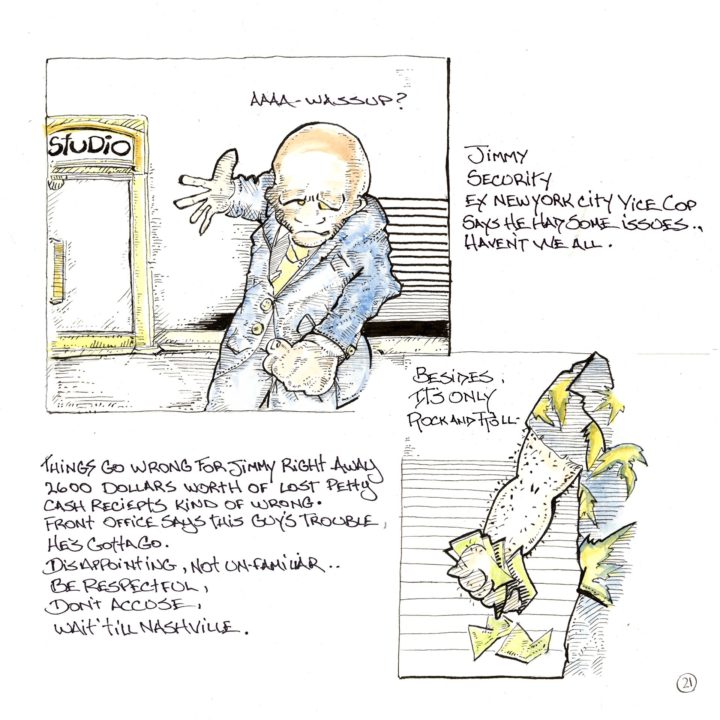 AAAA-WASSUP?
STUDIO
JIMMY
SECURITY
EX NEW YORK CITY VICE COP
SAYS HE HAD SOME ISSUES..
HAVEN'T WE ALL.
BESIDES,
IT'S ONLY
ROCK AND ROLL.
THINGS GO WRONG FOR JIMMY RIGHT AWAY
2600 DOLLARS WORTH OF LOST PETTY
CASH RECIEPTS KIND OF WRONG.
FRONT OFFICE SAYS THIS GUY'S TROUBLE,
HE'S GOTTA GO.
DISAPPOINTING, NOT UN-FAMILIAR..
BE RESPECTFUL,
DON'T ACCUSE,
WAIT 'TILL NASHVILLE.
21